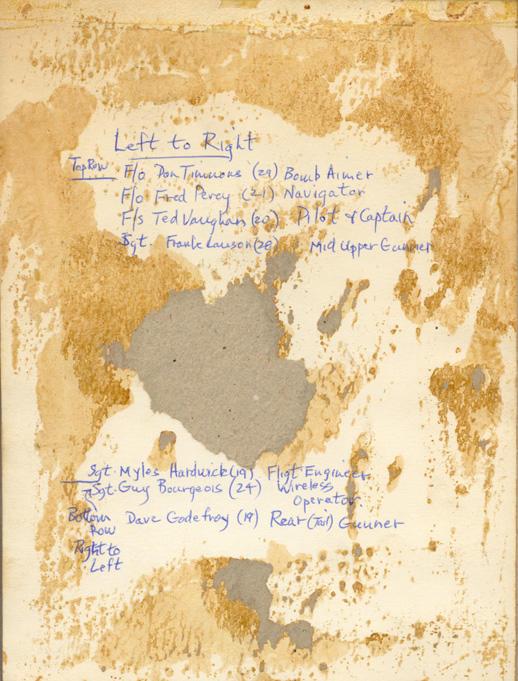 Left to Right
Top Row F/o Don Timmons (29) Bomb Aimer
F/o Fred Percy (21) Navigator
F/s Ted Vaughan (20) Pilot & Captain
Sgt. Frank Lawson (28) Mid Upper Gunner
Sgt. Myles Hardwick (19) Fligt Engineer
Sgt. Guy Bourgeois (24) Wireless
Operator
Bottom Dave Godefroy (19) Rear (Tail) Gunner
Row
Right to
Left